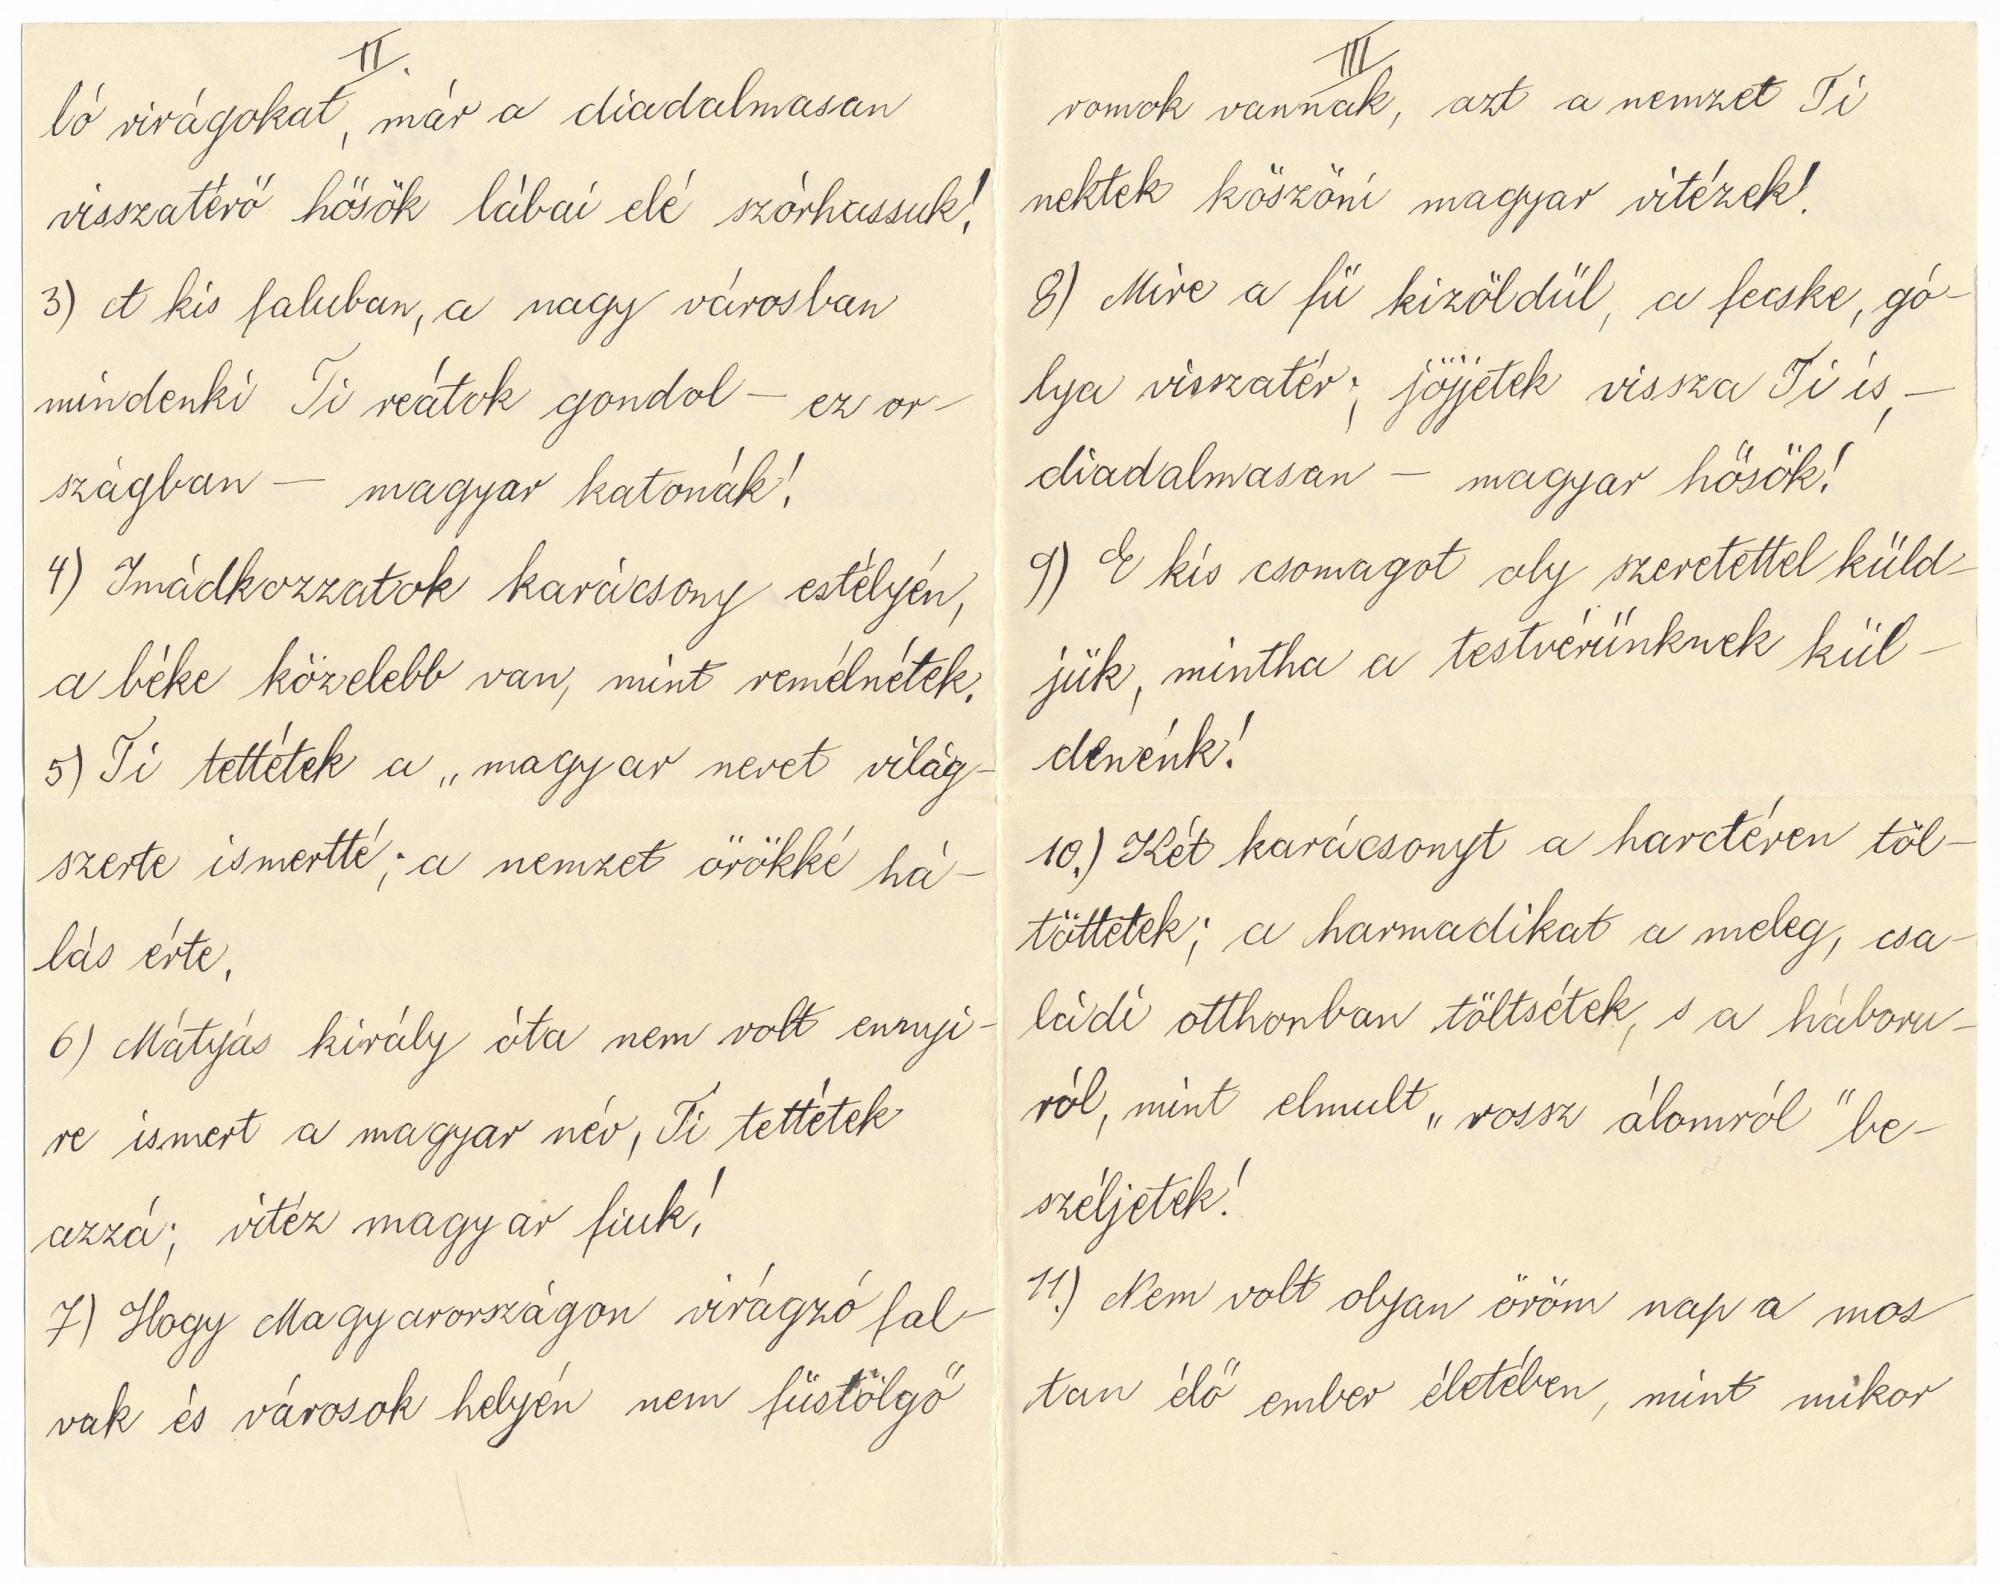 II.
ló virágokat, már a diadalmasan
visszatérő hősök lábai elé szórhassuk!
3) A kis faluban, a nagy városban
mindenki Ti reátok gondol – ez or-
szágban – magyar katonák!
4) Imádkozzatok karácsony estélyén,
a béke közelebb van, mint remélnétek.
5) Ti tettétek a „magyar nevet világ-
szerte ismertté; a nemzet örökké há-
lás érte.
6) Mátyás király óta nem volt ennyi-
re ismert a magyar név, Ti tettétek
azzá; vitéz magyar fiuk!
7) Hogy Magyarországon virágzó fal-
vak és városok helyén nem füstölgő
III
romok vannak, azt a nemzet Ti
nektek köszöni magyar vitézek!
8) Mire a fü kizöldül, a fecske, gó-
lya visszatér; jöjjetek vissza Ti is, –
diadalmasan – magyar hősök!
9) E kis csomagot oly szeretettel küld-
jük, mintha a testvérünknek kül-
denénk!
10.) Két karácsonyt a harctéren töl-
töttetek; a harmadikat a meleg, csa-
ládi otthonban töltsétek, s a háboru-
ról, mint elmult „rossz álomról" be-
széljetek!
11.) Nem volt olyan öröm nap a mos
tan élő ember életében, mint mikor